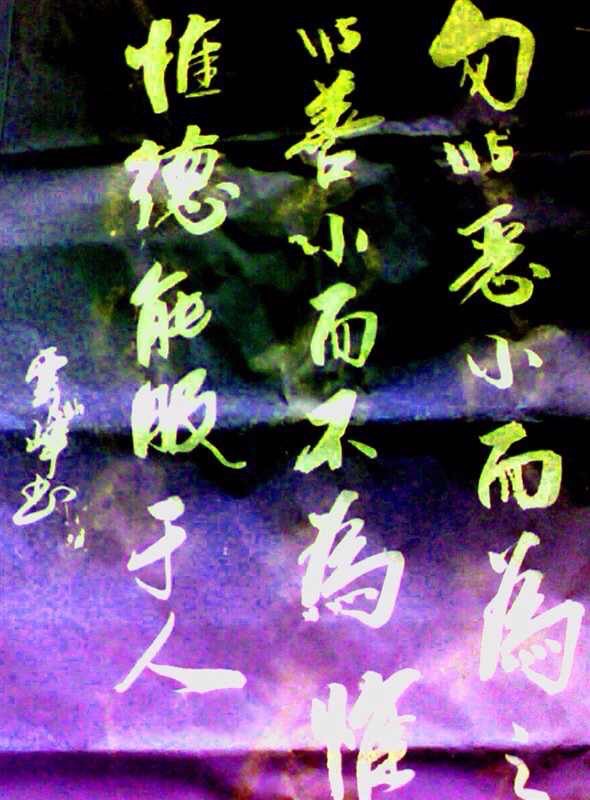 勿以恶小而為之
以善小而不為惟
惟德能服于人
雲峰书